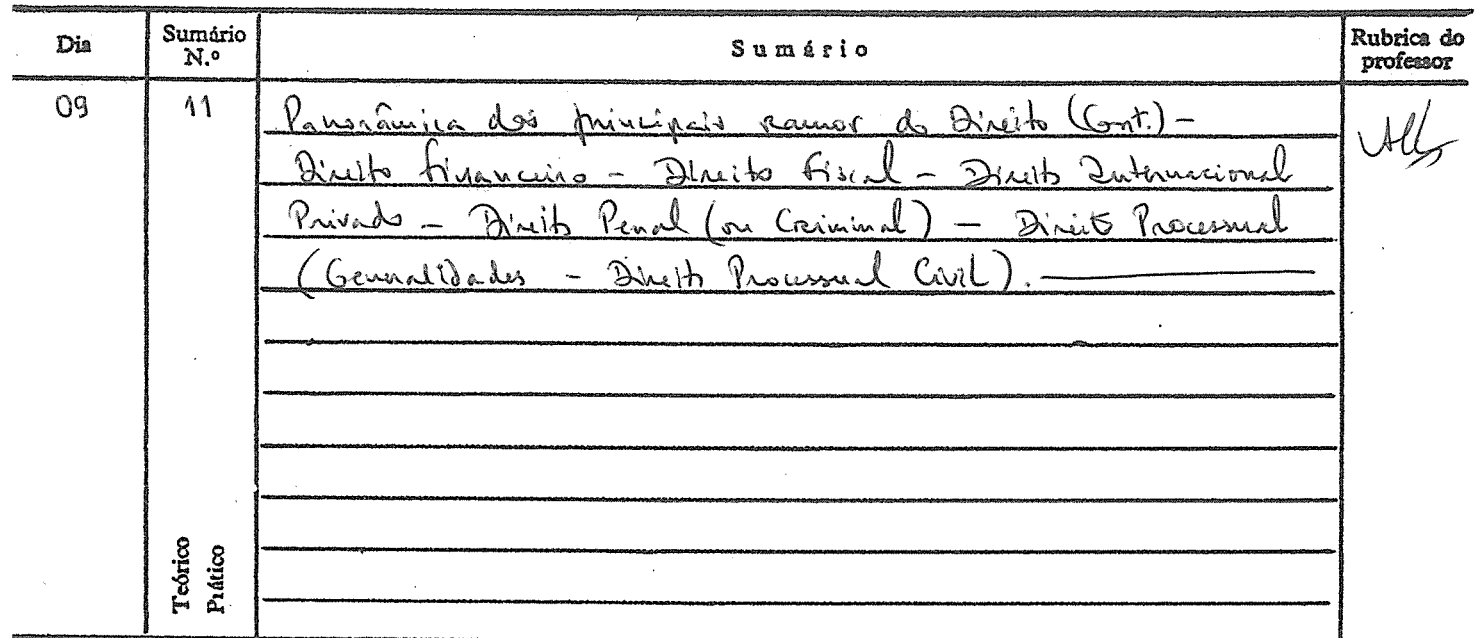 Dia
Sumário N.º
Sumário
Rubrica do professor
09
11
Panorâmica dos principais ramos do Direito (Cont.) -
Direito Financeiro - Direito Fiscal - Direito Internacional
Privado - Direito Penal (ou Criminal) - Direito Processual
(Generalidades - Direito Processual Civil).
Teórico
Prático